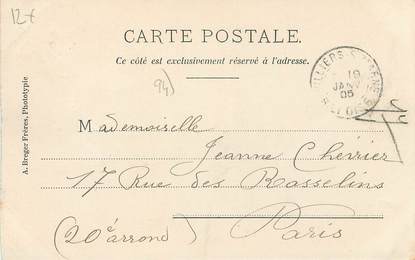 12-€
CARTE POSTALE.
Ce côté est exclusivement réservé à l'adresse.
94)
VILLIERS-S-MARNE
19
JANV
05
S.-ET-OISE
A. Breger Frères, Phototypie
Mademoiselle
Jeanne Chérrier
17 Rue des Rasselins
(20e arrond)
Paris